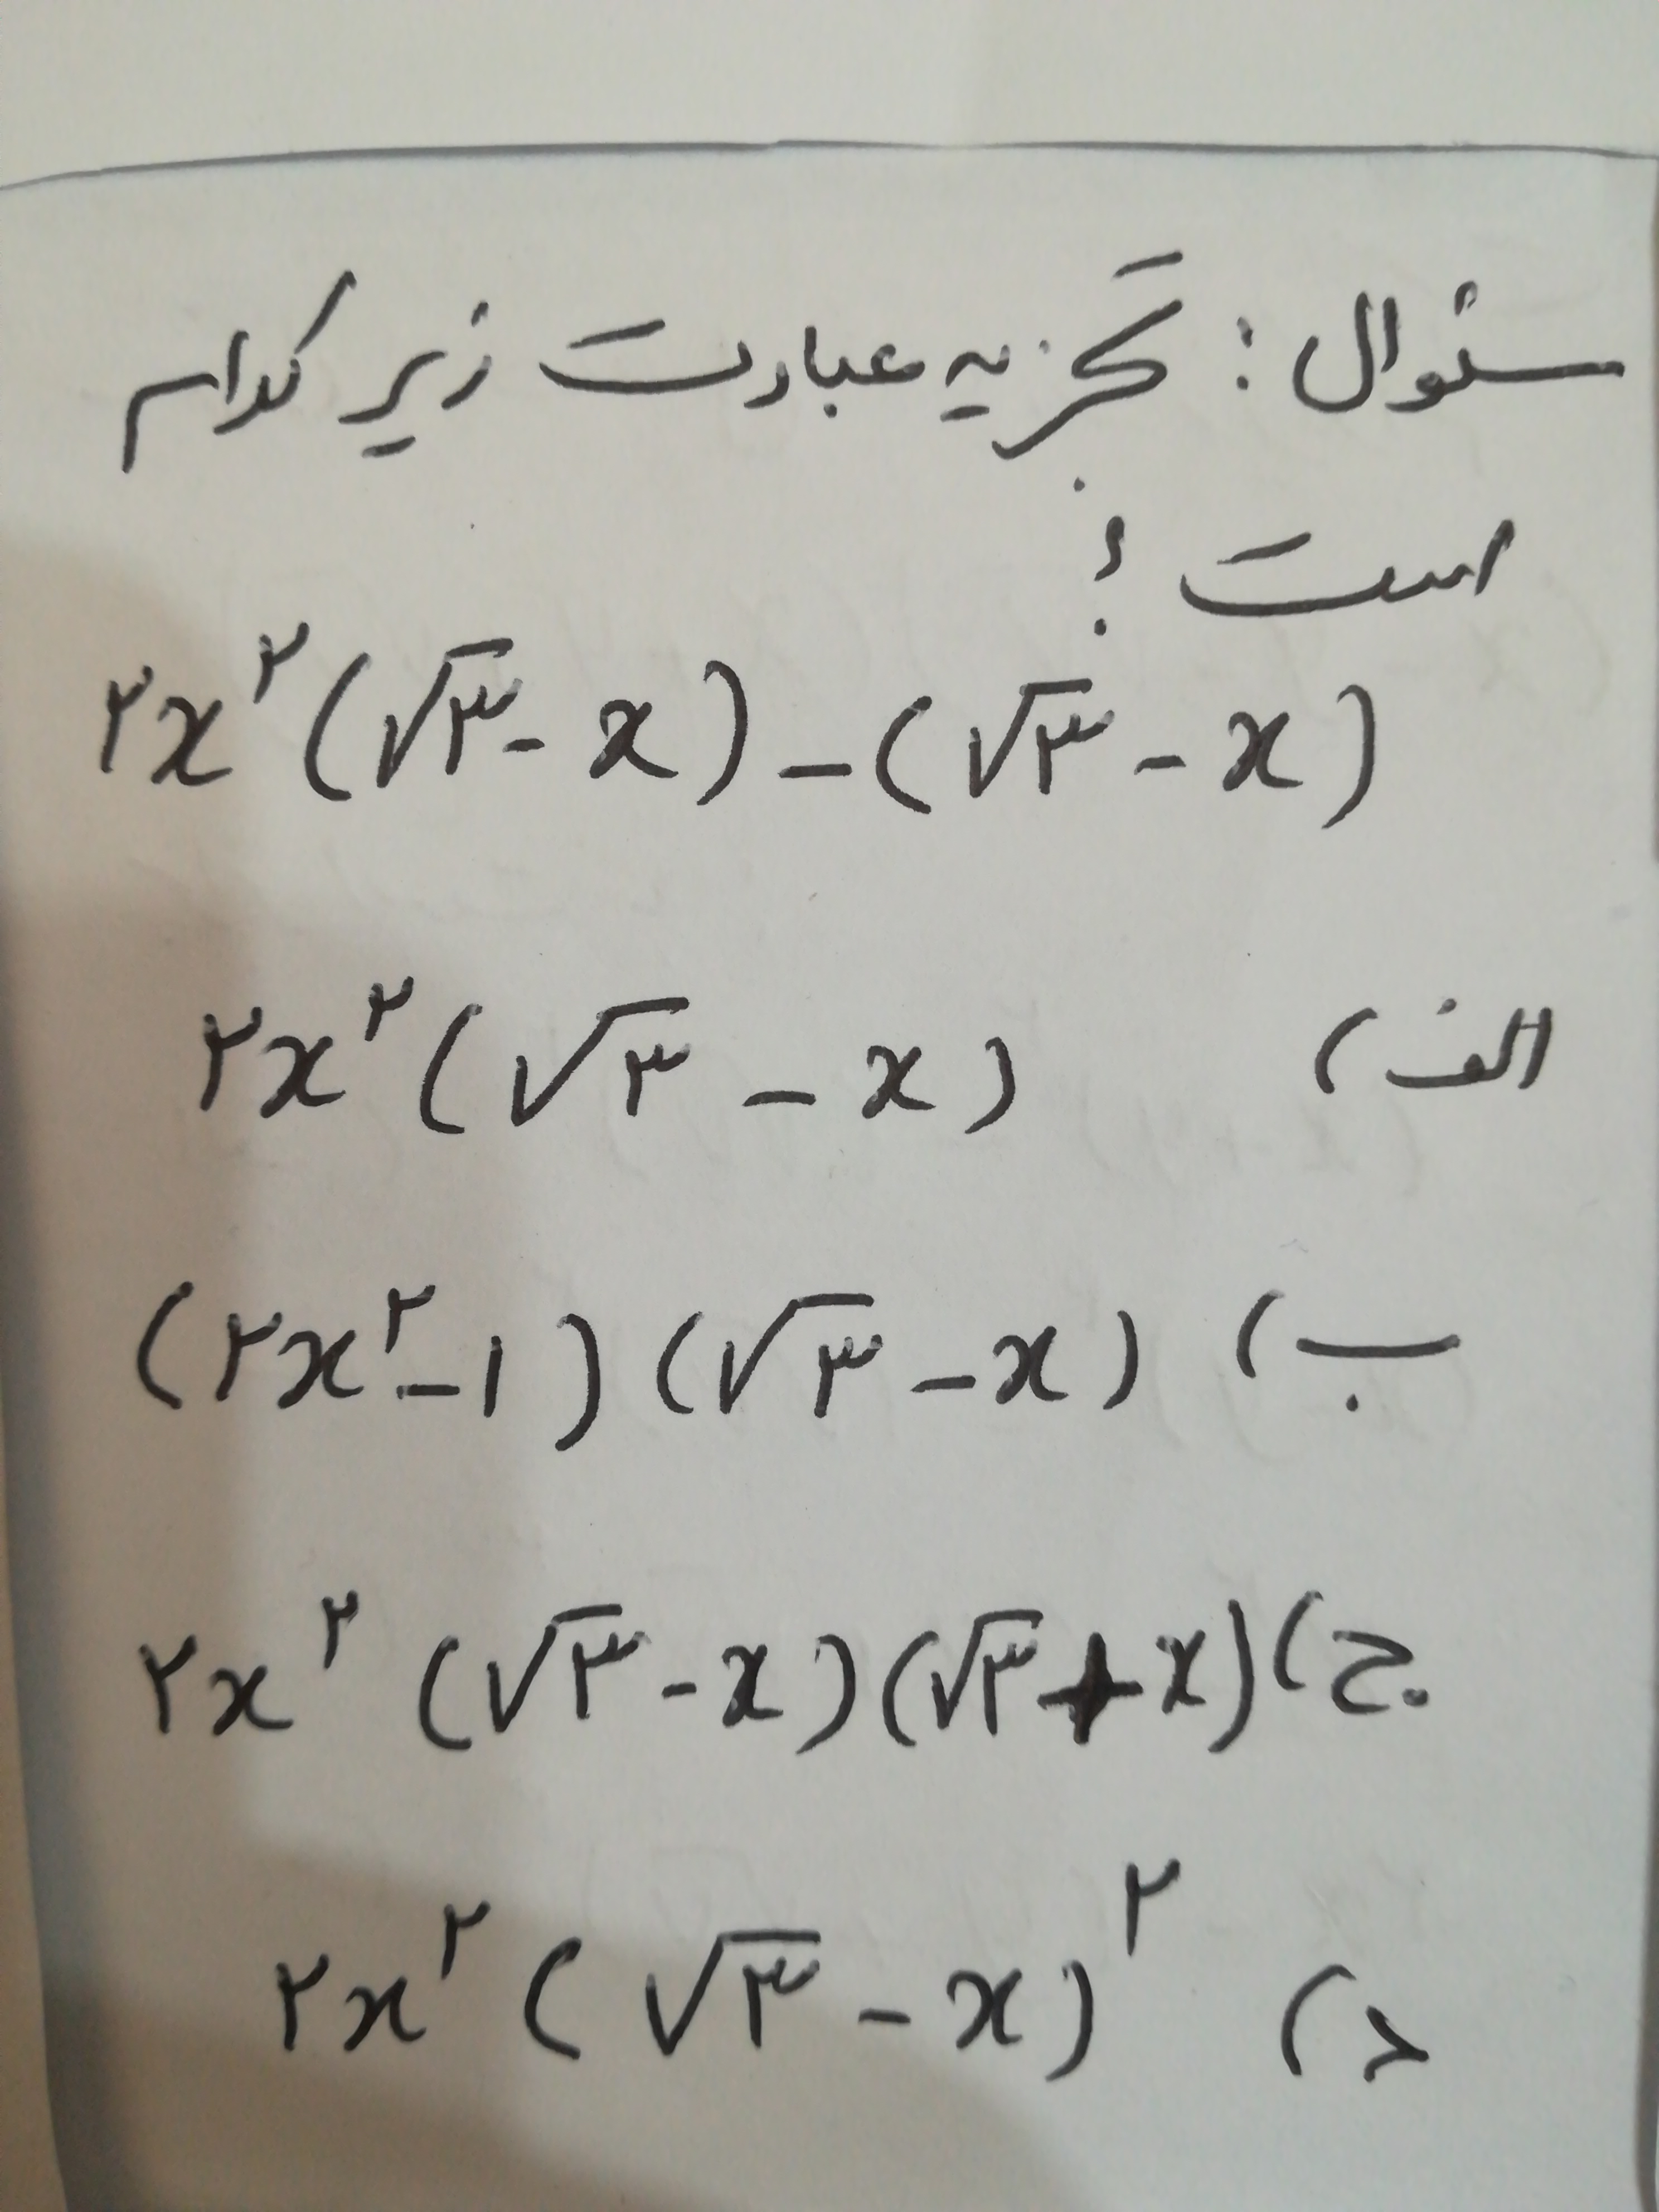 سئوال : تجزیه عبارت زیر کدام
است ؟
۲x^۲(√۳ - x) - (√۳ - x)
الف) ۲x^۲(√۳ - x)
ب) (۲x^۲ - ۱)(√۳ - x)
ج) ۲x^۲ (√۳ - x)(√۳ + x)
د) ۲x^۲(√۳ - x)^۲